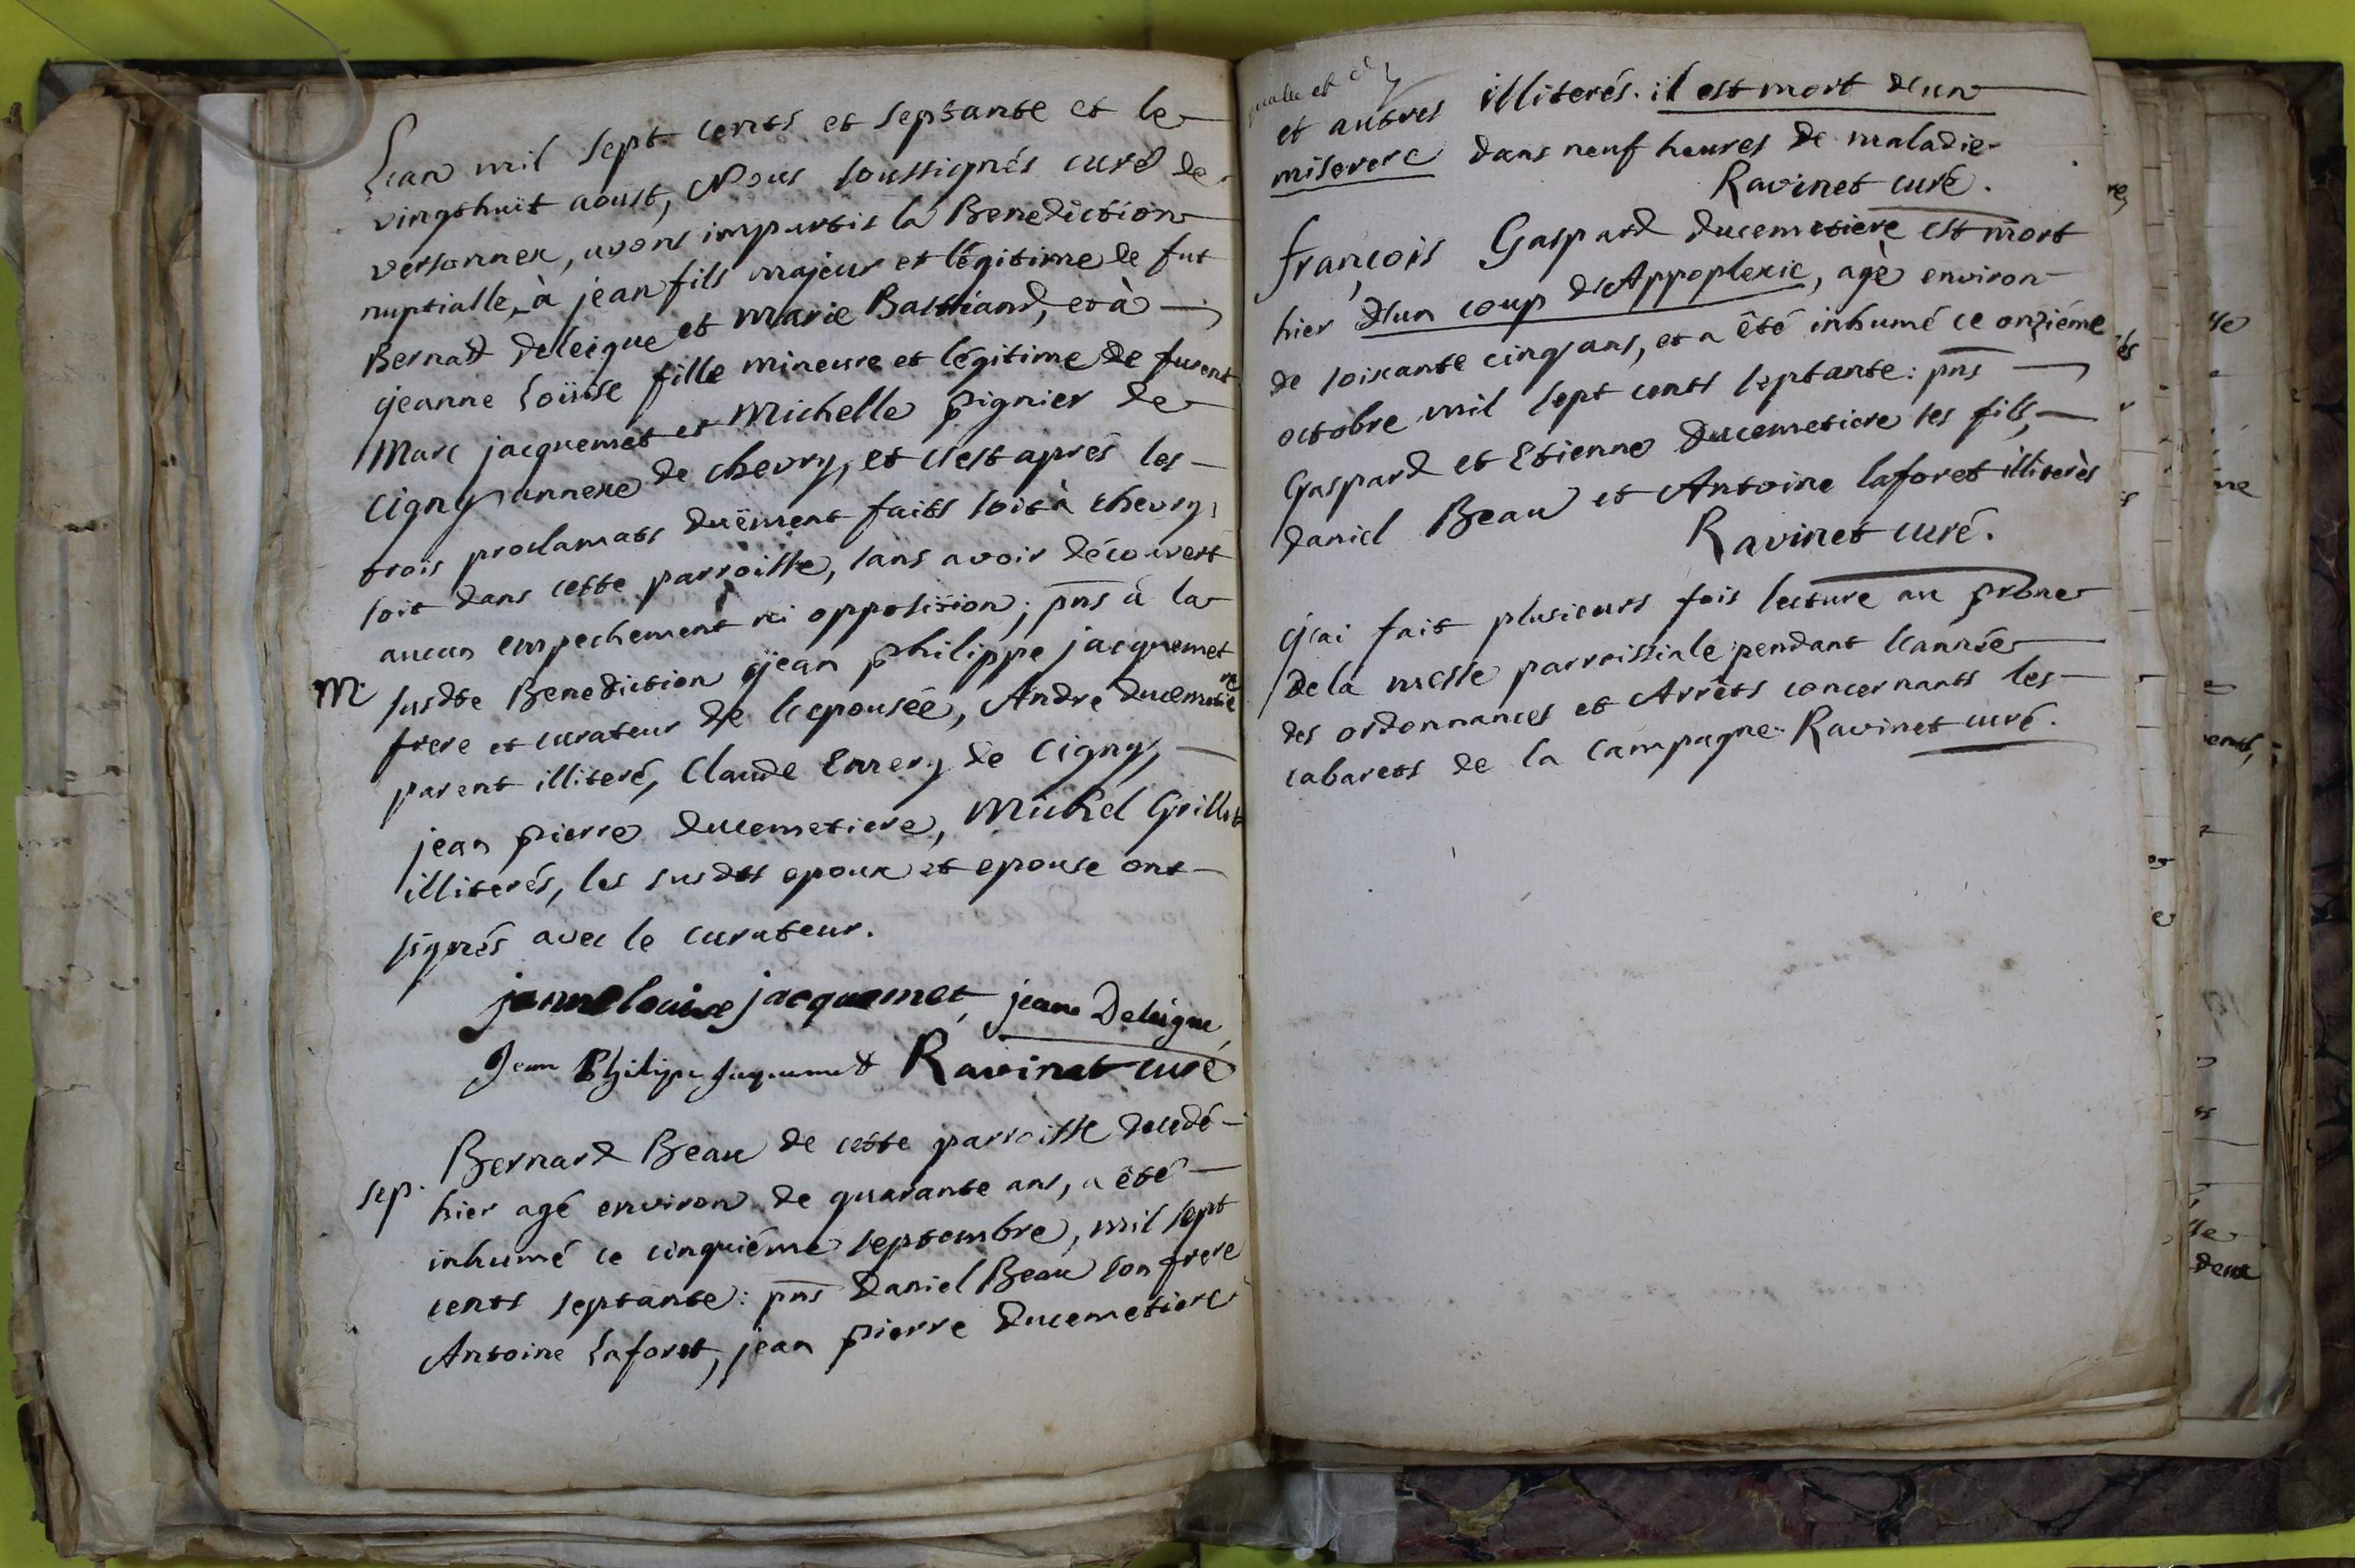 L'an mil sept cents et septante et le
vingthuit aoust, Nous soussignés curé de
versonnex, avons impartis la Benediction
nuptialle, à jean fils majeur et légitime de fut
Bernard deleigue et marie Bastiand, et à
jeanne Loüise fille mineure et légitime de furent
Marc jacquemet et Michelle pignier de
Cigny annexe de chevry, et c'est aprés les
trois proclamats duëment faits soit à chevry,
soit dans cette parroisse, sans avoir découvert
aucun empechement ni opposision; pns à la
M. susdte Benediction jean philippe jacquemet
frere et curateur de l'epousée, Andre ducemetiere
parent illiteré, Claude Emery de Cigny,
jean pierre ducemetiere, Michel Grillet
illiterés, les susdts epoux et epouse ont
signés avec le curateur.
janne louise jacquemet, jean Deleigue,
Jean Philipe Jaquemet Ravinet curé
Bernard Beau de cette parroisse decedé
sep. hier agé environ de quarante ans, a été
inhumé ce cinquiéme septembre, mil sept
cents septante: pns Daniel Beau son frere
Antoine Laforet, jean pierre ducemetiere
et autres illiterés. il est mort d'un
miserere dans neuf heures de maladie
Ravinet curé.
françois Gaspard ducemetiere est mort
hier d'un coup d'Appoplexie, agè environ
de soixante cinq ans, et a été inhumé ce onziéme
octobre mil sept cents septante: pns
Gaspard et Etienne ducemetiere ses fils,
daniel Beau et Antoine laforet illiterès
Ravinet curé.
j'ai fait plusieurs fois lecture au prône
de la messe parroissiale pendant l'année
des ordonnances et Arrêts concernants les
cabarets de la campagne. Ravinet curé.